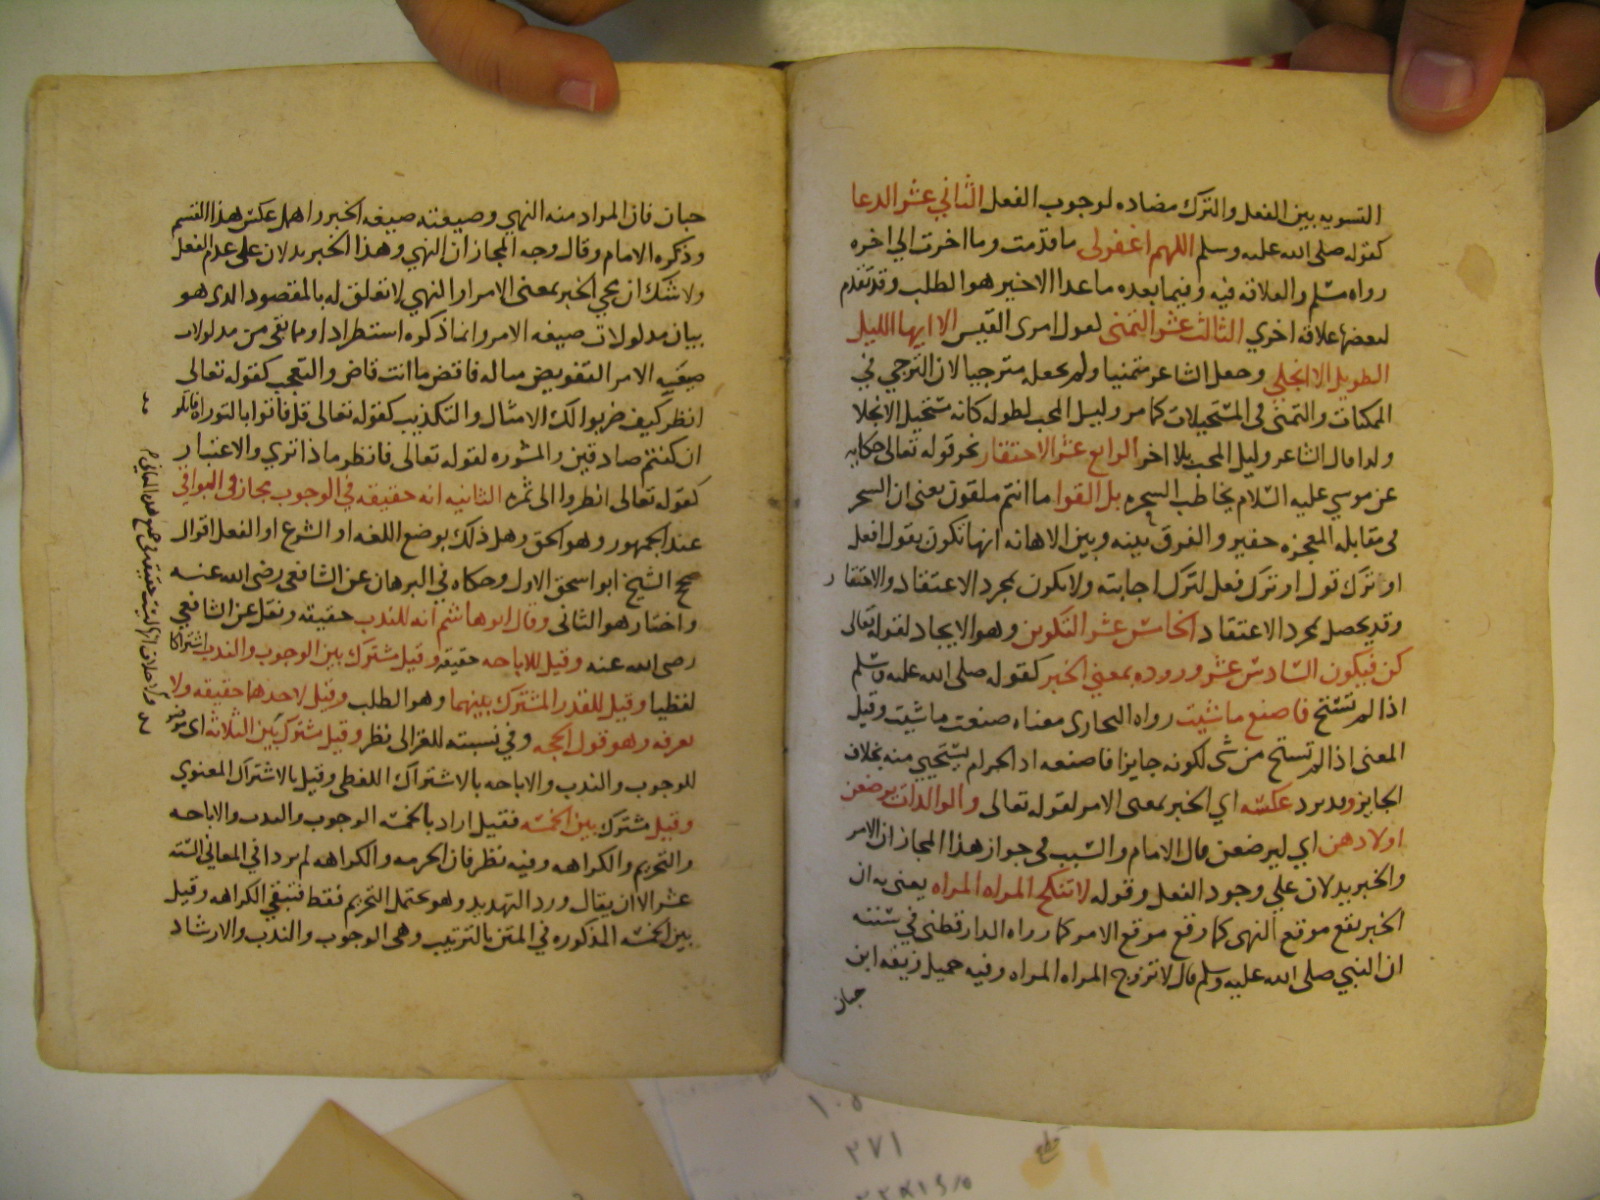 التسويه بين الفعل والترك مضاده لوجوب الفعل الثاني عشر الدعا
كقوله صلى الله عليه وسلم اللهم اغفر لي ما قدمت وما اخرت الى اخره
رواه مسلم والعلاقه فيه وفيما بعده ما عدا الاخير هو الطلب وقد تقدم
لبعضها علاقه اخري الثالث عشر التمنى كقول امرى القيس الا ايها الليل
الطويل الا انجلي وجعل الشاعر متمنيا ولم يجعل مترجيا لان الترجي في
الممكنات والتمنى في المستحيلات كما مر وليل المحب لطوله كانه مستحيل الانجلا
ولدا قال الشاعر وليل المحب بلا اخر الرابع عشر الاحتقار نحو قوله تعالى حكايه
عن موسي عليه السلام يخاطب السحره بل القوا ما انتم ملقون يعنى ان السحر
فى مقابله المعجزه حقير والفرق بينه وبين الاهانه انها تكون بقول او فعل
او ترك قول او ترك فعل لترك اجابته ولا يكون بمجرد الاعتقاد والاحتقار
وقد يحصل بمجرد الاعتقاد الخامس عشر التكوين وهو الايجاد لقوله تعالى
كن فيكون السادس عشر وروده بمعنى الخبر كقوله صلى الله عليه وسلم
اذا لم تستح فاصنع ما شيت رواه البخارى معناه صنعت ما شيت وقيل
المعنى اذا لم تستح من شى لكونه جايزا فاصنعه اد الحرام يستحيى منه بخلاف
الجايز ويرد عكسه اي الخبر بمعنى الامر لقوله تعالى والوالدات يرضعن
اولادهن اي ليرضعن قال الامام والسبب فى جواز هذا المجاز ان الامر
والخبر يدلان علي وجود الفعل وقوله لا تنكح المراه المراه يعنى به ان
الخبر يقع موقع النهى كما وقع موقع الامر كما رواه الدارقطنى في سننه
ان النبي صلى الله عليه وسلم قال لا تزوج المراه المراه وفيه جميل زيفه ابن
حبان
حبان فان المراد منه النهي وصيغته صيغه الخبر واهل عكس هذا القسم
وذكره الامام وقال وجه المجاز ان النهي وهذا الخبر يدلان على عدم الفعل
ولا شك ان مجي الخبر بمعنى الامر او النهي لا تعلق له بالمقصود الدى هو
بيان مدلولات صيغه الامر وانما ذكره استطرادا ومما بقى من مدلولات
صيغه الامر التفويض مثاله فاقض ما انت قاض والتعجب كقوله تعالى
انظر كيف ضربوا لك الامثال والتكذيب كقوله تعالى قل فاتوا بالتوراه فاتلو
ان كنتم صادقين والمشوره لقوله تعالى فانظر ماذا تري والاعتبار
كقوله تعالى انظروا الى ثمره الثانيه انه حقيقه في الوجوب مجاز في البواقي
عند الجمهور وهو الحق وهل ذلك بوضع اللغه او الشرع او الفعل اقوال
صحح الشيخ ابو اسحق الاول وحكاه في البرهان عن الشافعى رضى الله عنه
واختار هو الثانى وقال ابو هاشم انه للندب حقيقه ونقل عن الشافعي
رضى الله عنه وقيل للاباحه حقيقه وقيل مشترك بين الوجوب والندب اشتراكا
لفظيا وقيل للقدر المشترك بينهما وهو الطلب وقيل لاحدهما حقيقه ولا
نعرفه وهو قول الحجه وفي نسبته للغزالى نظر وقيل مشترك بين الثلاثه اى
للوجوب والندب والاباحه بالاشتراك اللفظى وقيل بالاشتراك المعنوي
وقيل مشترك بين الخمسه فقيل اراد بالخمسه الوجوب والندب والاباحه
والتحريم والكراهه وفيه نظر فان الحرمه والكراهه لم يردا في المعاني السته
عشر الا ان يقال ورد التهديد وهو يحتمل التحريم فقط فتبقي الكراهه وقيل
بين الخمسه المذكوره في المتن بالترتيب وهى الوجوب والندب والارشاد
١٠٥
٢٧١